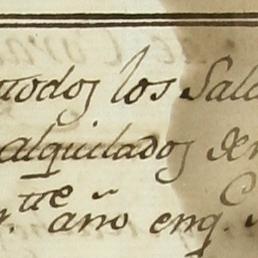 todos los Sala
alquilados de
r.te año enq.